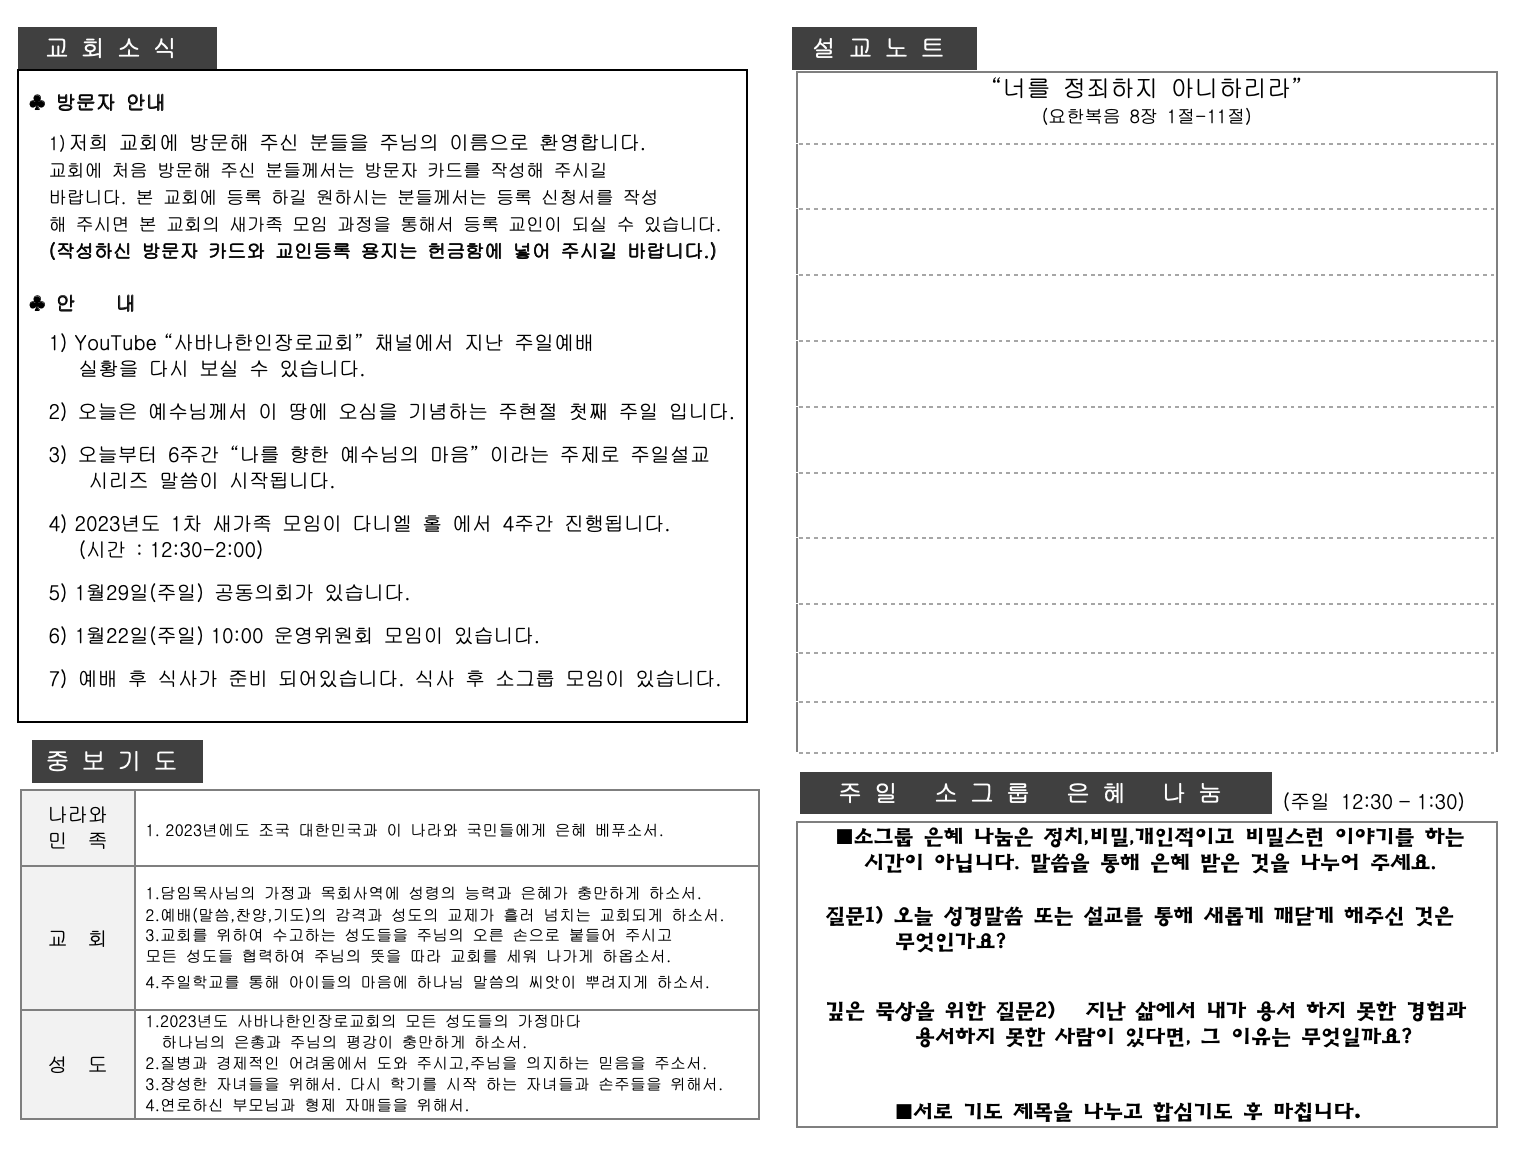 교 회 소 식
♣ 방문자 안내
1)저희 교회에 방문해 주신 분들을 주님의 이름으로 환영합니다.
교회에 처음 방문해 주신 분들께서는 방문자 카드를 작성해 주시길
바랍니다. 본 교회에 등록 하길 원하시는 분들께서는 등록 신청서를 작성
해 주시면 본 교회의 새가족 모임 과정을 통해서 등록 교인이 되실 수 있습니다.
(작성하신 방문자 카드와 교인등록 용지는 헌금함에 넣어 주시길 바랍니다.)
♣ 안 내
1) YouTube “사바나한인장로교회” 채널에서 지난 주일예배
실황을 다시 보실 수 있습니다.
2) 오늘은 예수님께서 이 땅에 오심을 기념하는 주현절 첫째 주일 입니다.
3) 오늘부터 6주간 “나를 향한 예수님의 마음” 이라는 주제로 주일설교
시리즈 말씀이 시작됩니다.
4) 2023년도 1차 새가족 모임이 다니엘 홀 에서 4주간 진행됩니다.
(시간 : 12:30-2:00)
5) 1월29일(주일) 공동의회가 있습니다.
6) 1월22일(주일) 10:00 운영위원회 모임이 있습니다.
7) 예배 후 식사가 준비 되어있습니다. 식사 후 소그룹 모임이 있습니다.
중 보 기 도
나라와
민 족
1. 2023년에도 조국 대한민국과 이 나라와 국민들에게 은혜 베푸소서.
교 회
1.담임목사님의 가정과 목회사역에 성령의 능력과 은혜가 충만하게 하소서.
2.예배(말씀,찬양,기도)의 감격과 성도의 교제가 흘러 넘치는 교회되게 하소서.
3.교회를 위하여 수고하는 성도들을 주님의 오른 손으로 붙들어 주시고
모든 성도들 협력하여 주님의 뜻을 따라 교회를 세워 나가게 하옵소서.
4.주일학교를 통해 아이들의 마음에 하나님 말씀의 씨앗이 뿌려지게 하소서.
성 도
1.2023년도 사바나한인장로교회의 모든 성도들의 가정마다
하나님의 은총과 주님의 평강이 충만하게 하소서.
2.질병과 경제적인 어려움에서 도와 주시고,주님을 의지하는 믿음을 주소서.
3.장성한 자녀들을 위해서. 다시 학기를 시작 하는 자녀들과 손주들을 위해서.
4.연로하신 부모님과 형제 자매들을 위해서.
설 교 노 트
“너를 정죄하지 아니하리라”
(요한복음 8장 1절-11절)
주 일 소 그 룹 은 혜 나 눔 (주일 12:30 – 1:30)
■소그룹 은혜 나눔은 정치,비밀,개인적이고 비밀스런 이야기를 하는
시간이 아닙니다. 말씀을 통해 은혜 받은 것을 나누어 주세요.
질문1) 오늘 성경말씀 또는 설교를 통해 새롭게 깨닫게 해주신 것은
무엇인가요?
깊은 묵상을 위한 질문2) 지난 삶에서 내가 용서 하지 못한 경험과
용서하지 못한 사람이 있다면, 그 이유는 무엇일까요?
■서로 기도 제목을 나누고 합심기도 후 마칩니다.